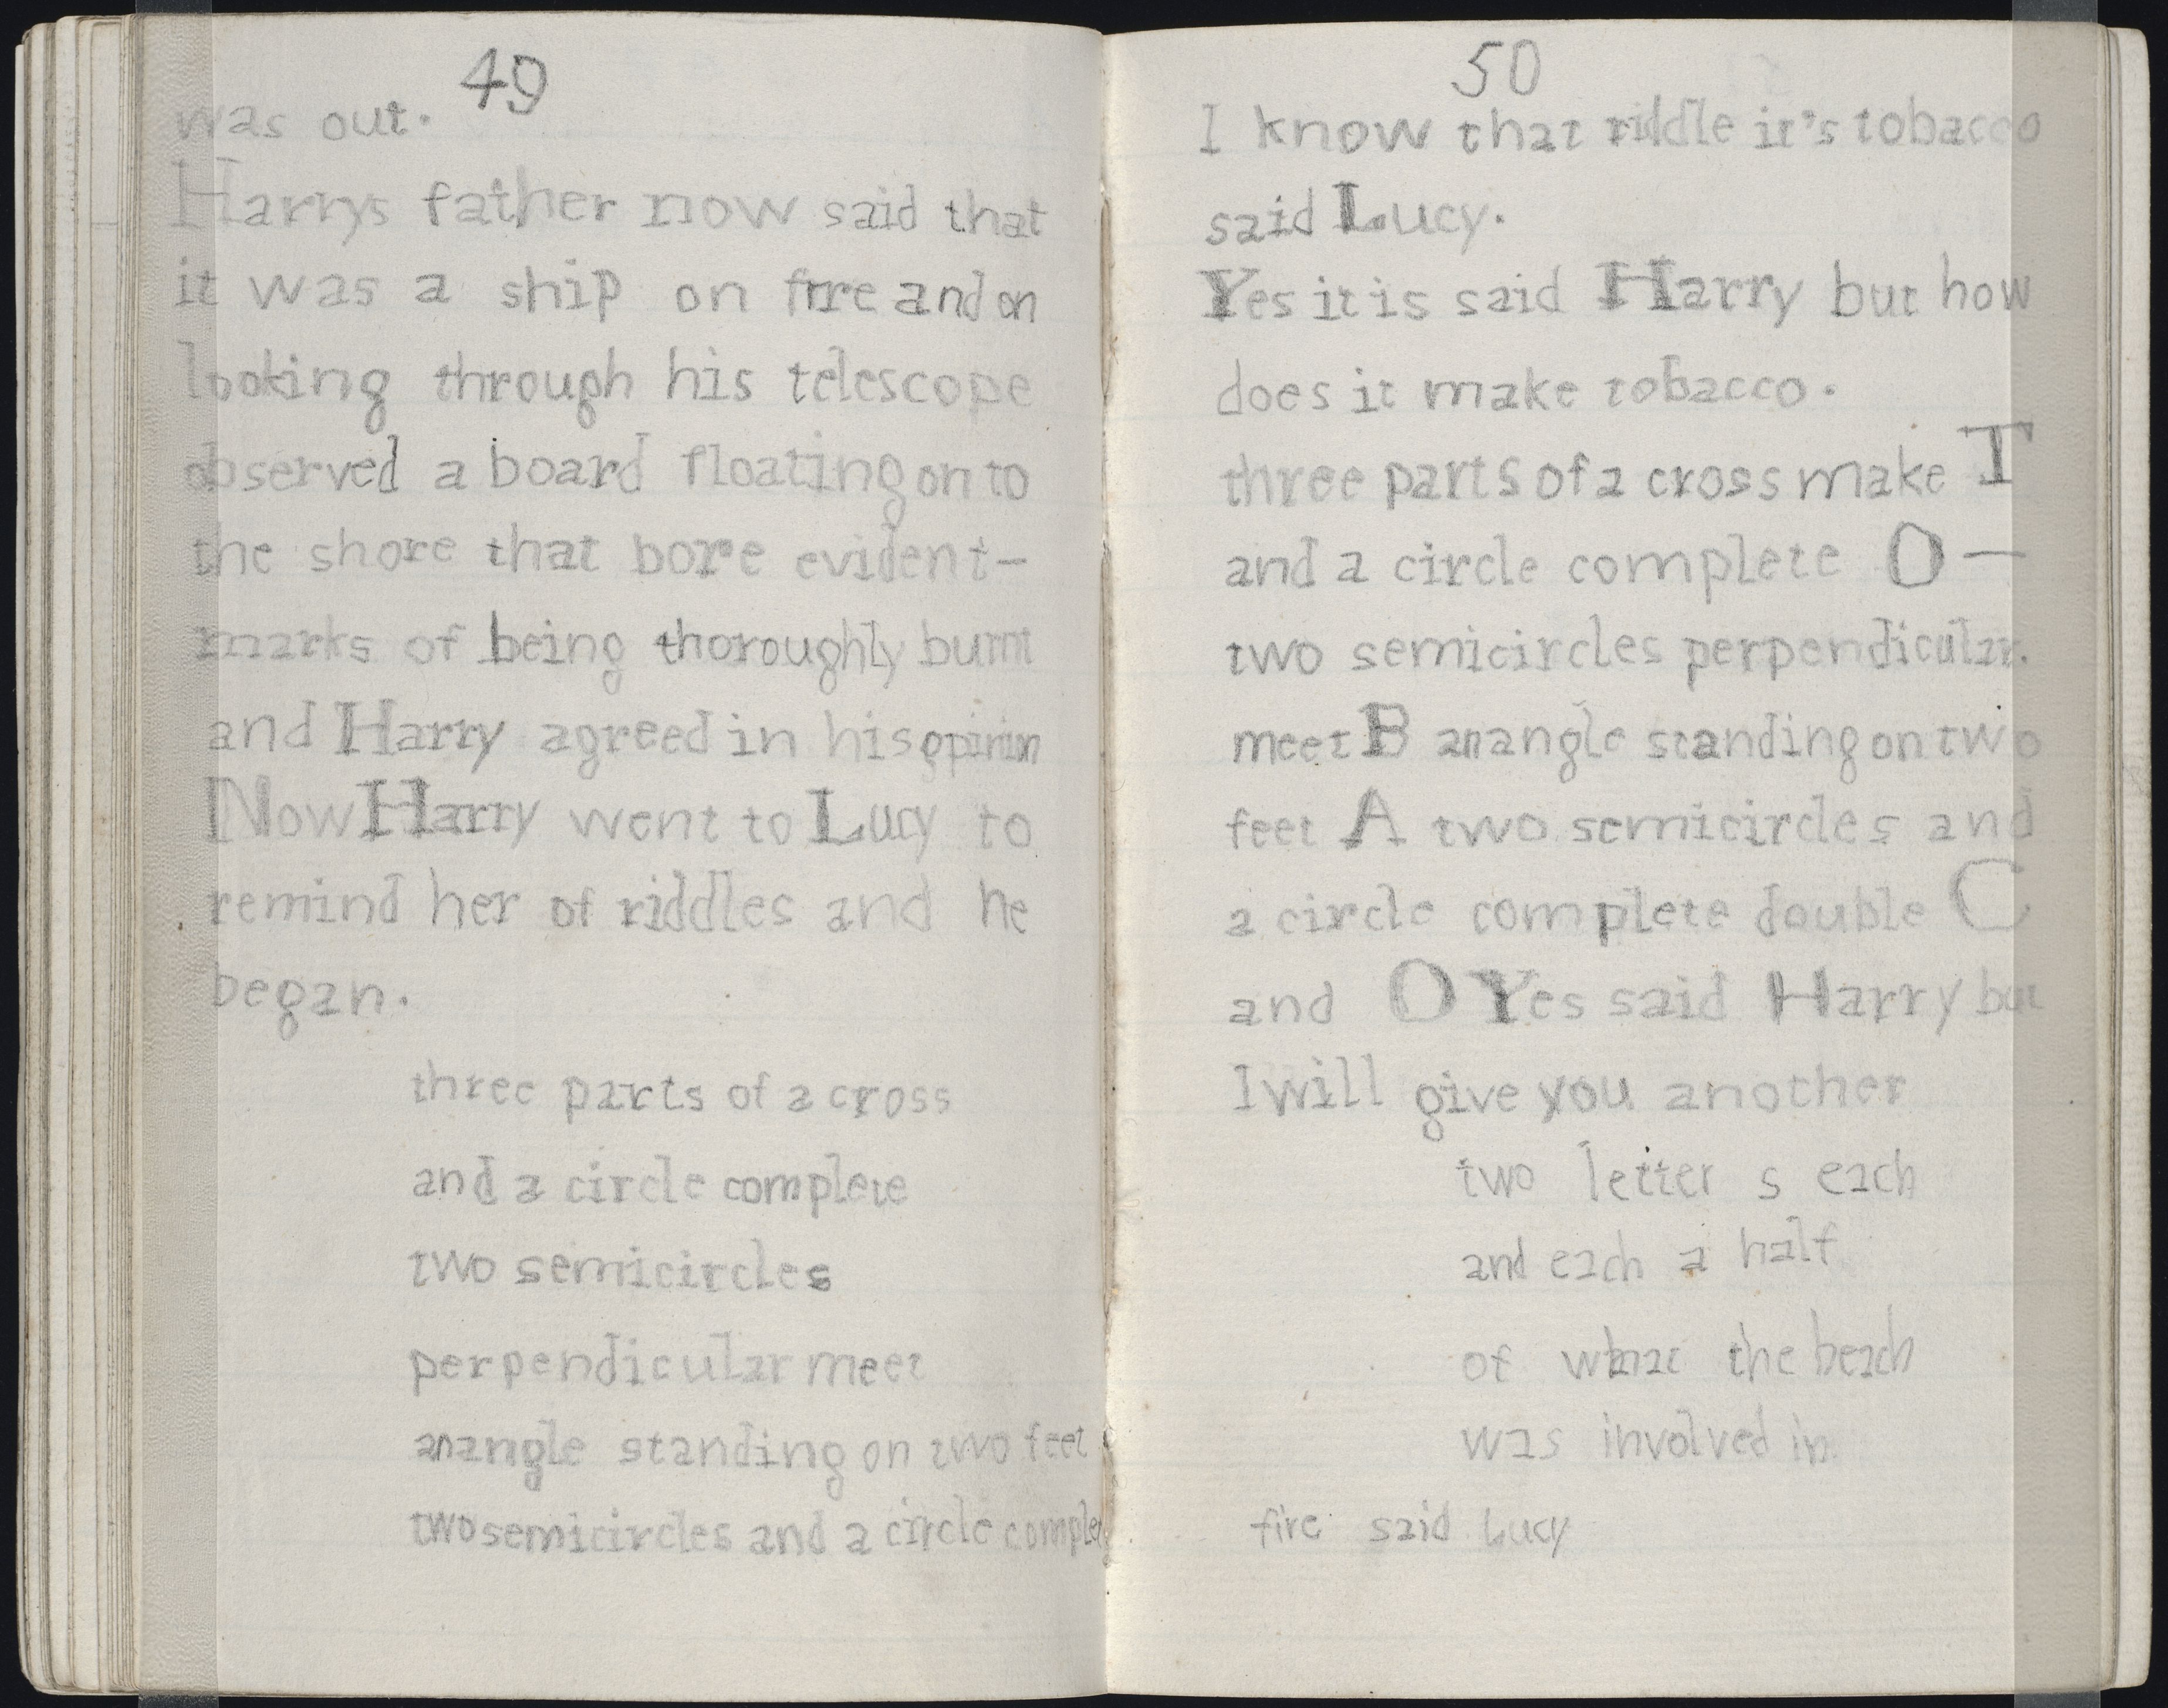 49
was out.
Harrys father now said that
it was a ship on fire and on
looking through his telescope
observed a board floating on to
the shore that bore evident-
marks of being thoroughly burnt
and Harry agreed in his opinion
Now Harry went to Lucy to
remind her of riddles and he
began.
three parts of a cross
and a circle complete
two semicircles
perpendicular meet
an angle standing on two feet
two semicircles and a circle complete
50
I know that riddle it's tobacco
said Lucy.
Yes it is said Harry but how
does it make tobacco.
three parts of a cross make T
and a circle complete O —
two semicircles perpendicular.
meet B an angle standing on two
feet A two semicircles and
a circle complete double C
and O Yes said Harry but
I will give you another
two letter s each
and each a half
of what the beach
was involved in.
fire said Lucy